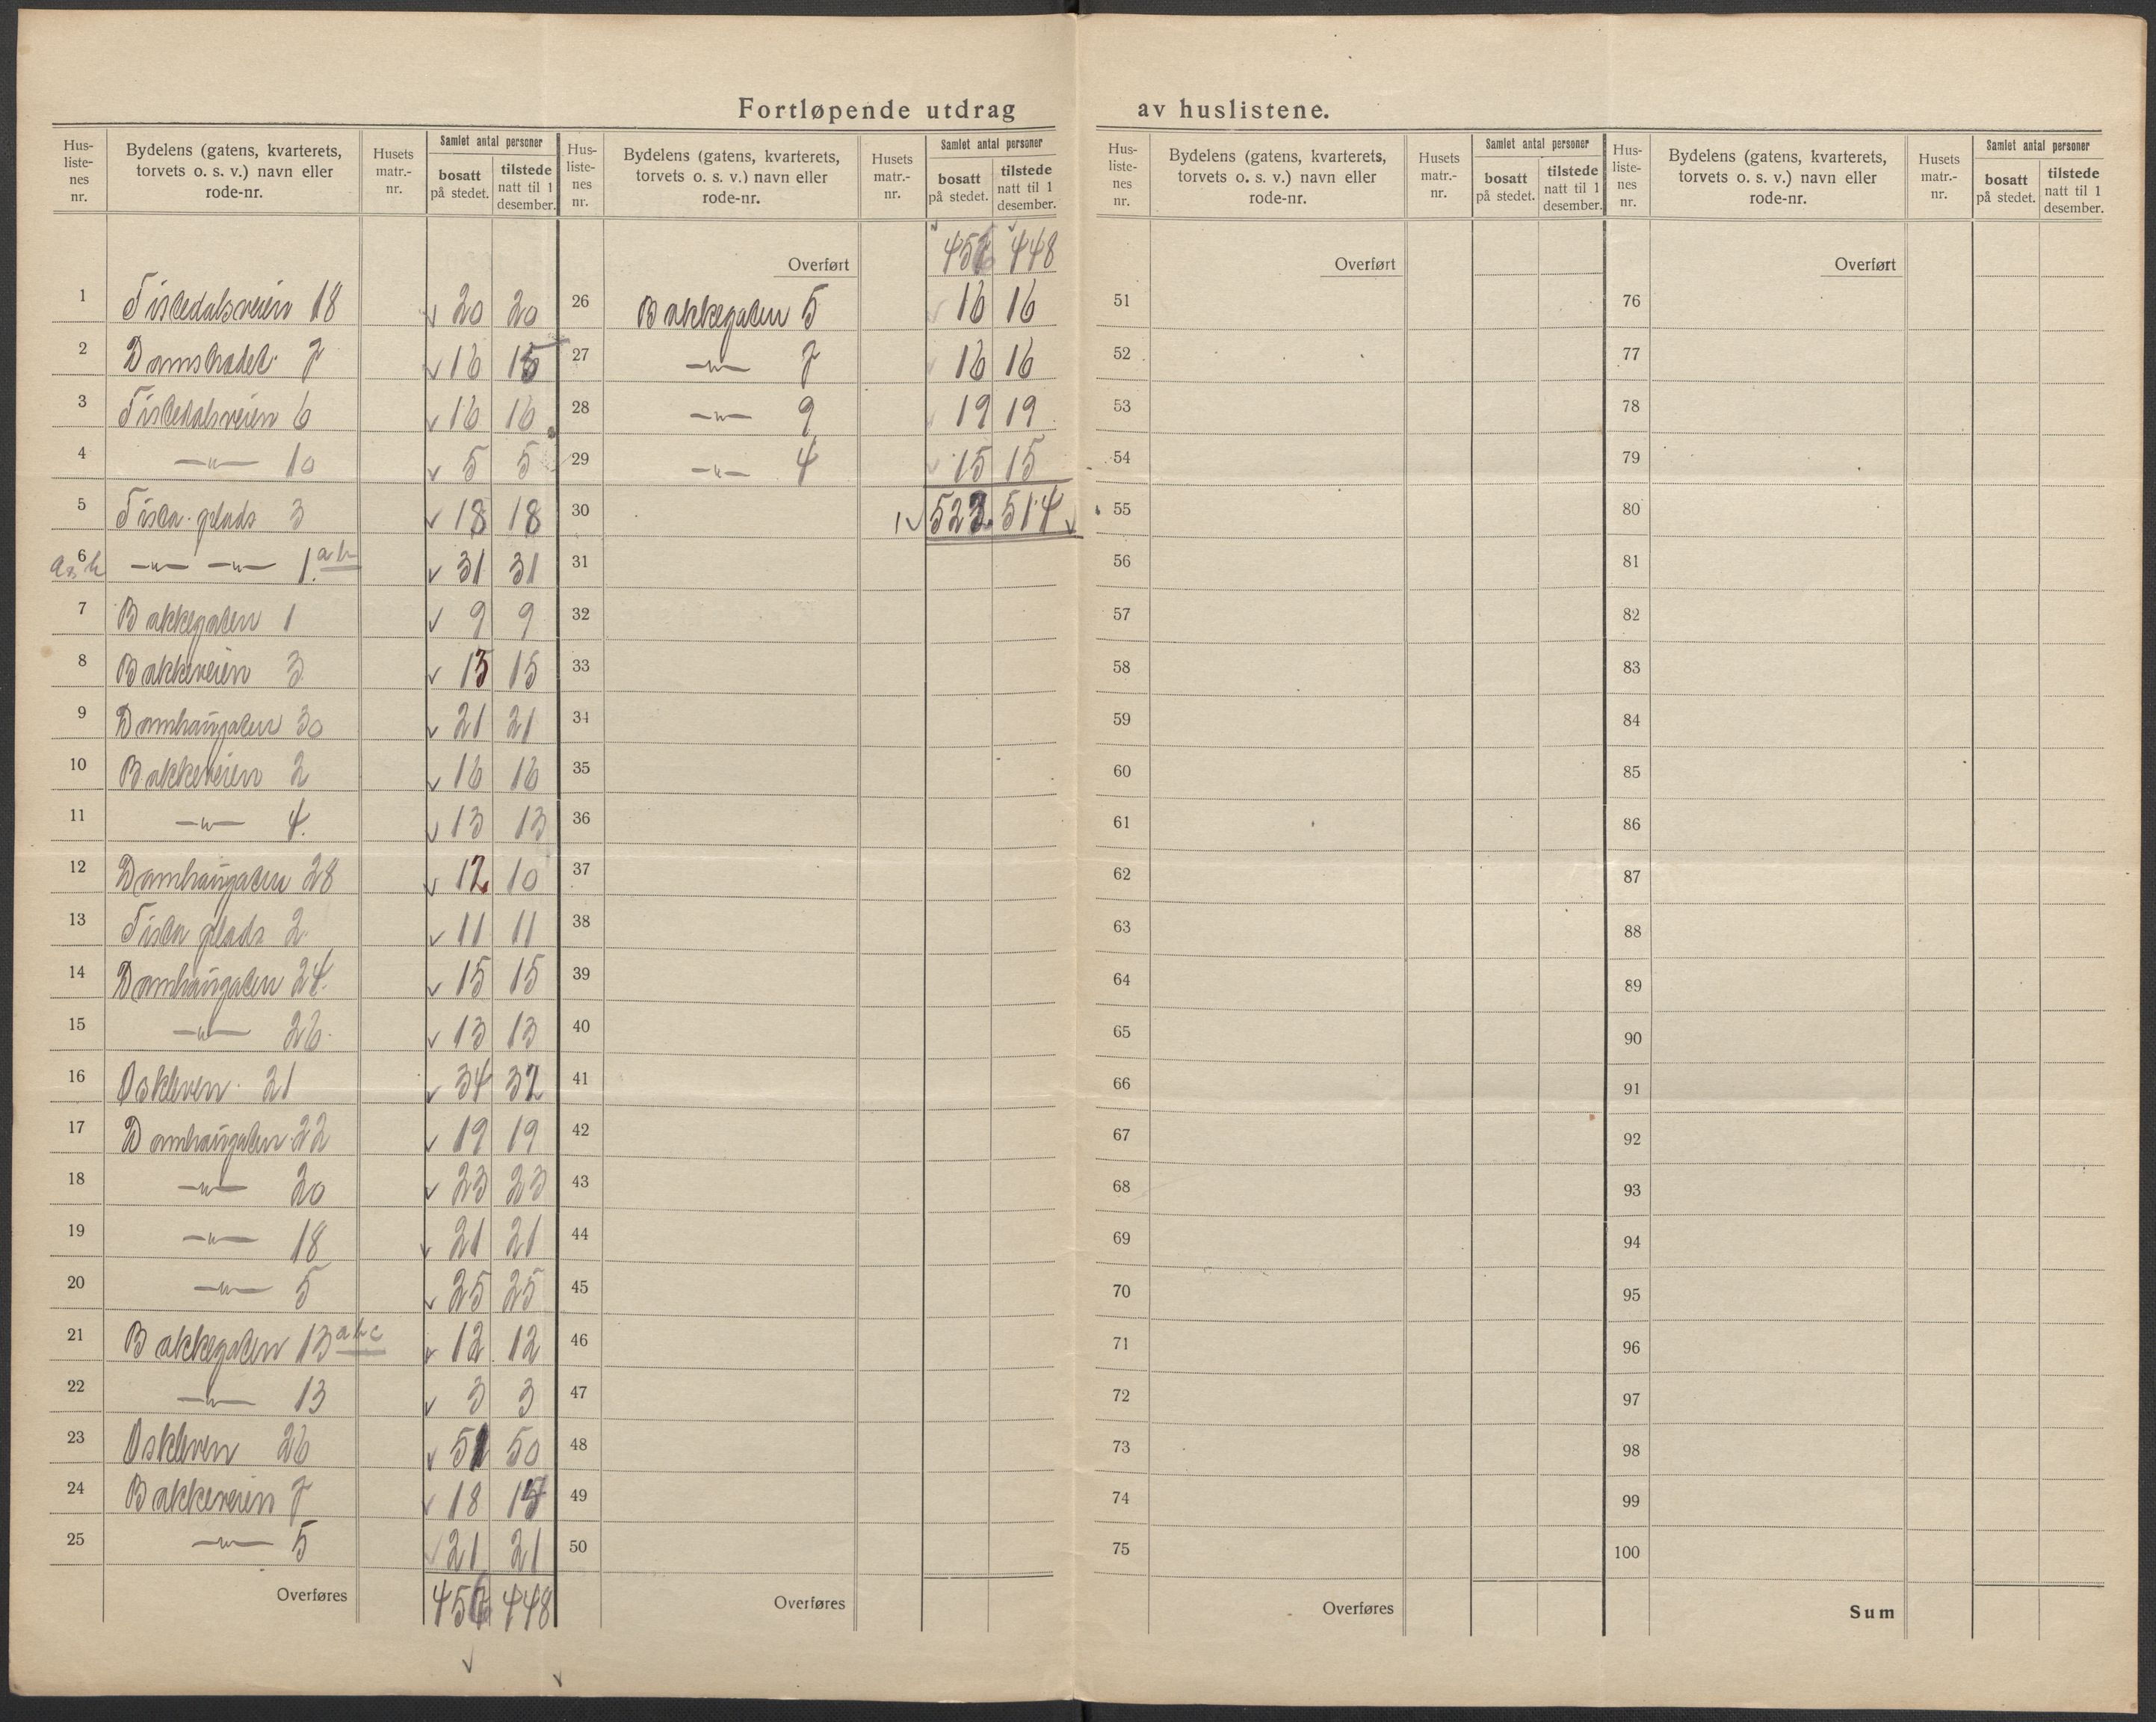 Fortløpende utdrag av huslistene.
Hus-listenes nr. | Bydelens (gatens, kvarterets, torvets o. s. v.) navn eller rode-nr. | Husets matr.-nr. | Samlet antal personer | bosatt på stedet. | tilstede natt til 1 desember.
1 Tistedalsveien 18 20 20
2 Damstrædet 7 16 15
3 Tistedalsveien 6 16 16
4 —"— 10 5 5
5 Tista plads 3 18 18
6 a, b —"— —"— 1 ab 31 31
7 Bakkegaten 1 9 9
8 Bakkeveien 3 13 15
9 Damhaugaten 30 21 21
10 Bakkeveien 2 16 16
11 —"— 4. 13 13
12 Damhaugaten 28 12 10
13 Tista plads 2 11 11
14 Damhaugaten 24. 15 15
15 —"— 26. 13 13
16 Oskleven 21 34 32
17 Damhaugaten 22 19 19
18 —"— 20 23 23
19 —"— 18 21 21
20 —"— 5 25 25
21 Bakkegaten 13 abc 12 12
22 —"— 13 3 3
23 Oskleven 26 51 50
24 Bakkeveien 7 18 17
25 —"— 5 21 21
Overføres 456 448
Hus-listenes nr. | Bydelens (gatens, kvarterets, torvets o. s. v.) navn eller rode-nr. | Husets matr.-nr. | Samlet antal personer | bosatt på stedet. | tilstede natt til 1 desember.
Overført 456 448
26 Bakkegaten 5 16 16
27 —"— 7 16 16
28 —"— 9 19 19
29 —"— 4 15 15
30 522 514
31
32
33
34
35
36
37
38
39
40
41
42
43
44
45
46
47
48
49
50
Overføres
Hus-listenes nr. | Bydelens (gatens, kvarterets, torvets o. s. v.) navn eller rode-nr. | Husets matr.-nr. | Samlet antal personer | bosatt på stedet. | tilstede natt til 1 desember.
Overført
51
52
53
54
55
56
57
58
59
60
61
62
63
64
65
66
67
68
69
70
71
72
73
74
75
Overføres
Hus-listenes nr. | Bydelens (gatens, kvarterets, torvets o. s. v.) navn eller rode-nr. | Husets matr.-nr. | Samlet antal personer | bosatt på stedet. | tilstede natt til 1 desember.
Overført
76
77
78
79
80
81
82
83
84
85
86
87
88
89
90
91
92
93
94
95
96
97
98
99
100
Sum